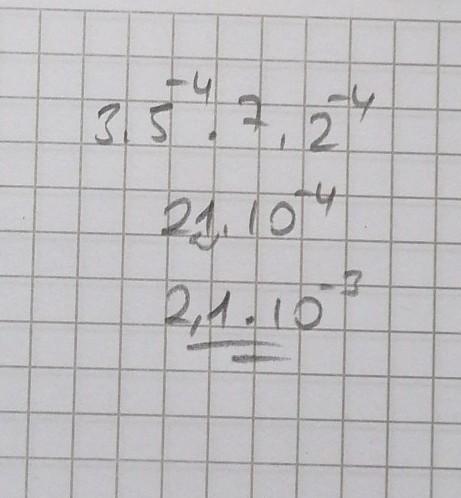 3.5⁻⁴.7.2⁻⁴
21.10⁻⁴
2,1.10⁻³